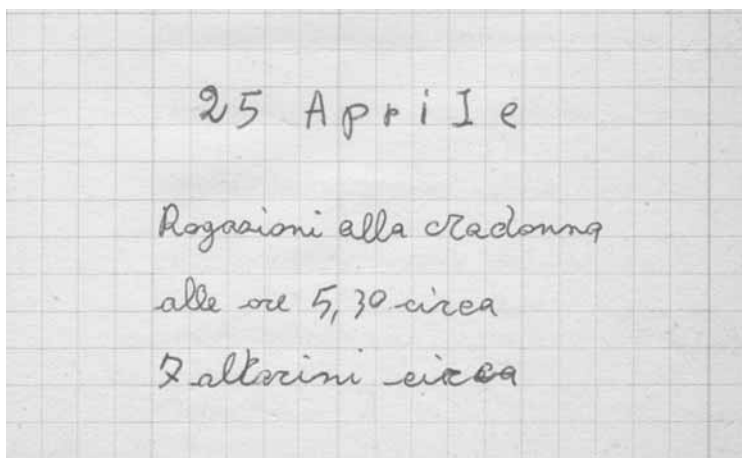 25 Aprile
Rogazioni alla Madonna
alle ore 5,30 circa
7 altarini circa